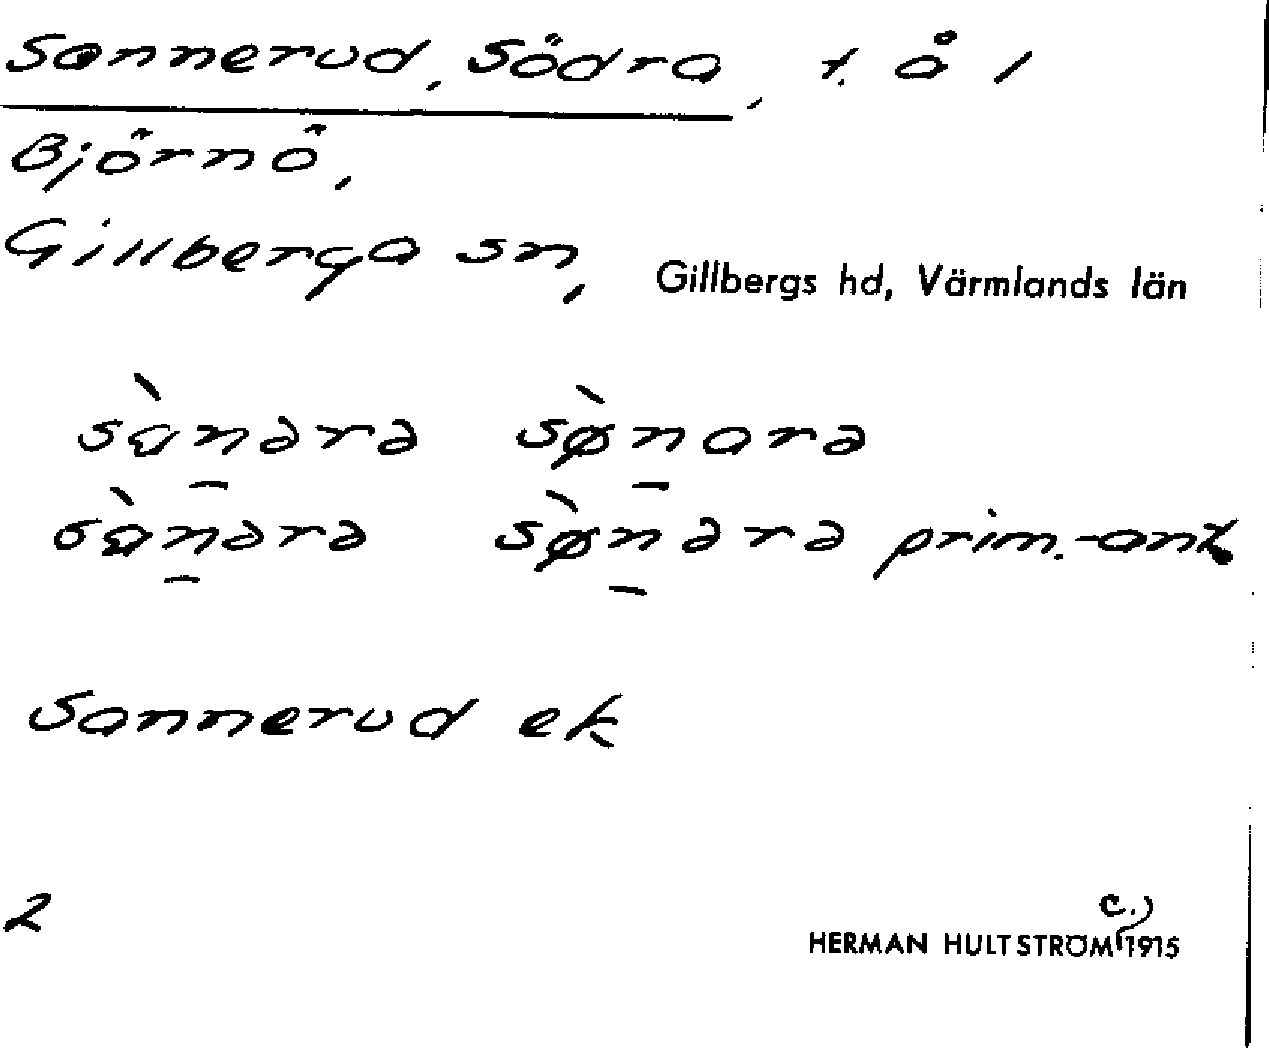 Sannerud, Södra, t. å 1
Björnö,
Gillberga sn, Gillbergs hd, Värmlands län
sànərə sø̀narə
sànərə sø̀nərə prim.-ant.
Sannerud ek
2
c.)
HERMAN HULTSTRÖM 1915